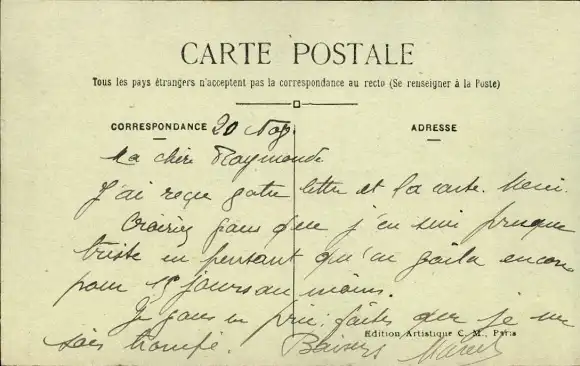 CARTE POSTALE
Tous les pays étrangers n'acceptent pas la correspondance au recto (Se renseigner à la Poste)
CORRESPONDANCE 20 Nov.
ADRESSE
Ma chère Raymonde
J'ai reçu votre lettre et la carte. Merci.
Croiriez vous que j'en suis presque
triste en pensant qu'en voilà encore
pour 15 jours au moins.
Je vous en prie: faites que je me
sois trompé. Baisers Marcel
Edition Artistique C. M., Paris